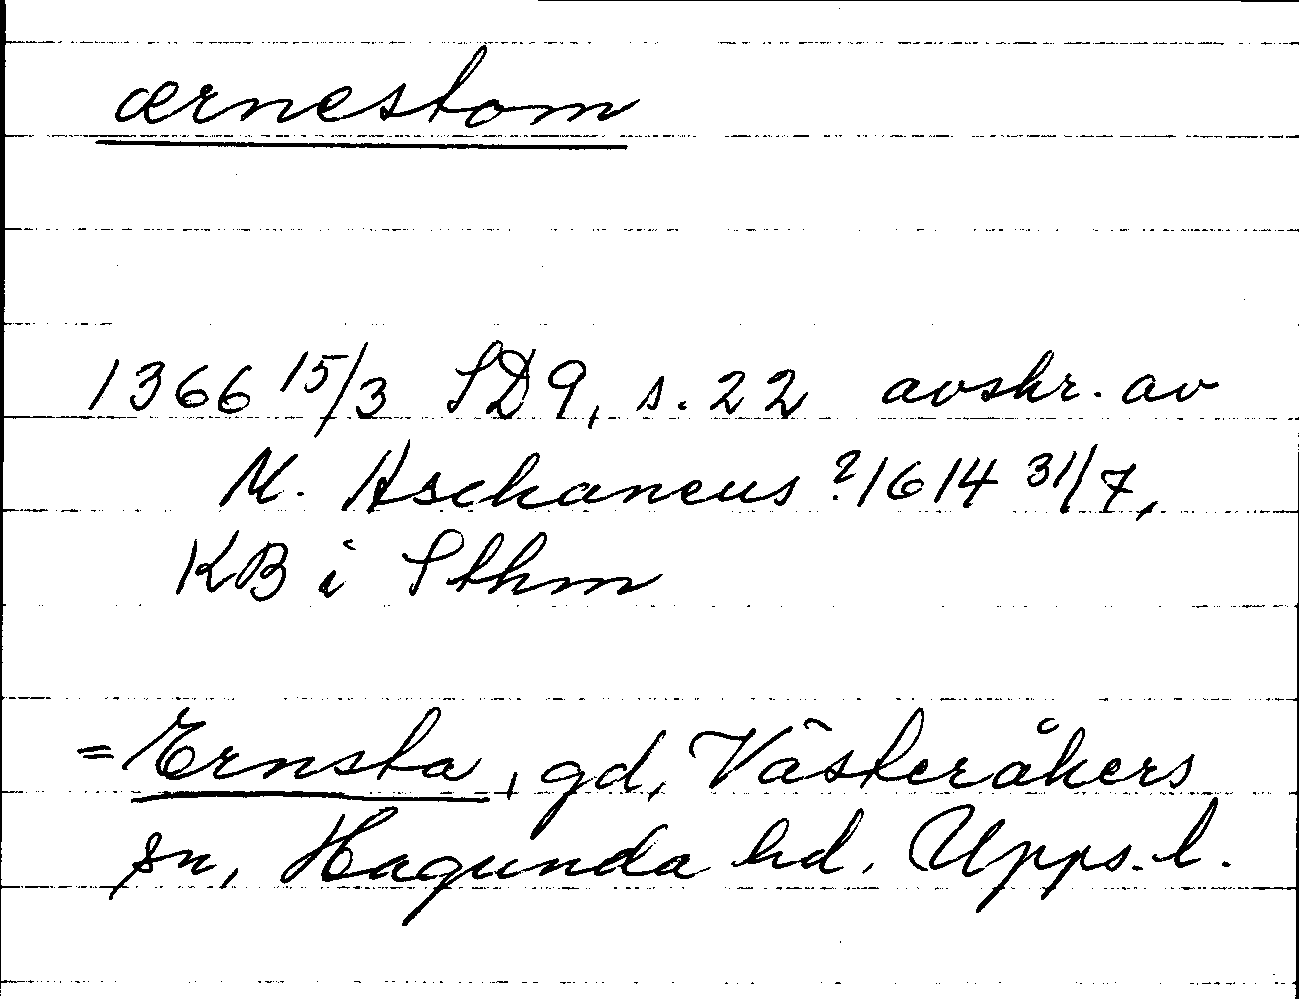 ærnestom
1366 15/3 SD9, s. 22 avskr. av
M. Aschaneus ?1614 31/7,
KB i Sthm
=Ernsta, gd, Västeråkers
sn, Hagunda hd. Upps. l.